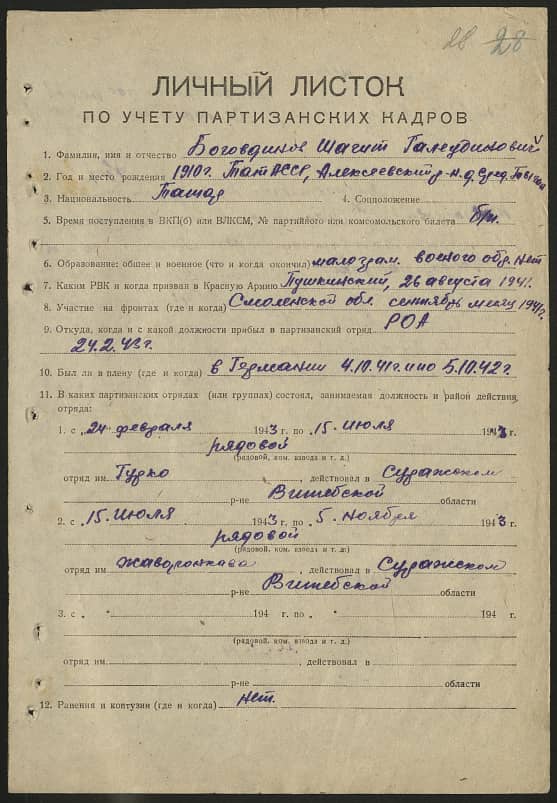 28 28
ЛИЧНЫЙ ЛИСТОК
ПО УЧЕТУ ПАРТИЗАНСКИХ КАДРОВ
1. Фамилия, имя и отчество Боговдинов Шагит Галеудинович
2. Год и место рождения 1910г. ТатАССР, Алексеевский р-н. д. Сред.
3. Национальность Татар 4. Соцположение
5. Время поступления в ВКП(б) или ВЛКСМ, № партийного или комсомольского билета б/п.
6. Образование: общее и военное (что и когда окончил) малограм. военого обр. нет
7. Каким РВК и когда призван в Красную Армию Пушкинский, 26 августа 1941.
8. Участие на фронтах (где и когда) Смоленской обл. сентябрь месяц 1941г.
9. Откуда, когда и с какой должности прибыл в партизанский отряд РОА
24.2.43г.
10. Был ли в плену (где и когда) в Германии 4.10.41г. и по 5.10.42г.
11. В каких партизанских отрядах (или группах) состоял, занимаемая должность и район действия
отряда:
1. с 24 февраля 1943 г. по 15 июля 1943 г.
рядовой
(рядовой, ком. взвода и т. д.)
отряд им. Гудко, действовал в Суражском
р-не Витебской области
2. с 15 июля 1943 г. по 5 ноября 1943 г.
рядовой
(рядовой, ком. взвода и т. д.)
отряд им. Жаворонкова, действовал в Суражском
р-не Витебской области
3. с " 194 г. по " 194 г.
(рядовой, ком. взвода и т. д.)
отряд им. , действовал в
р-не области
12. Ранения и контузии (где и когда) нет.